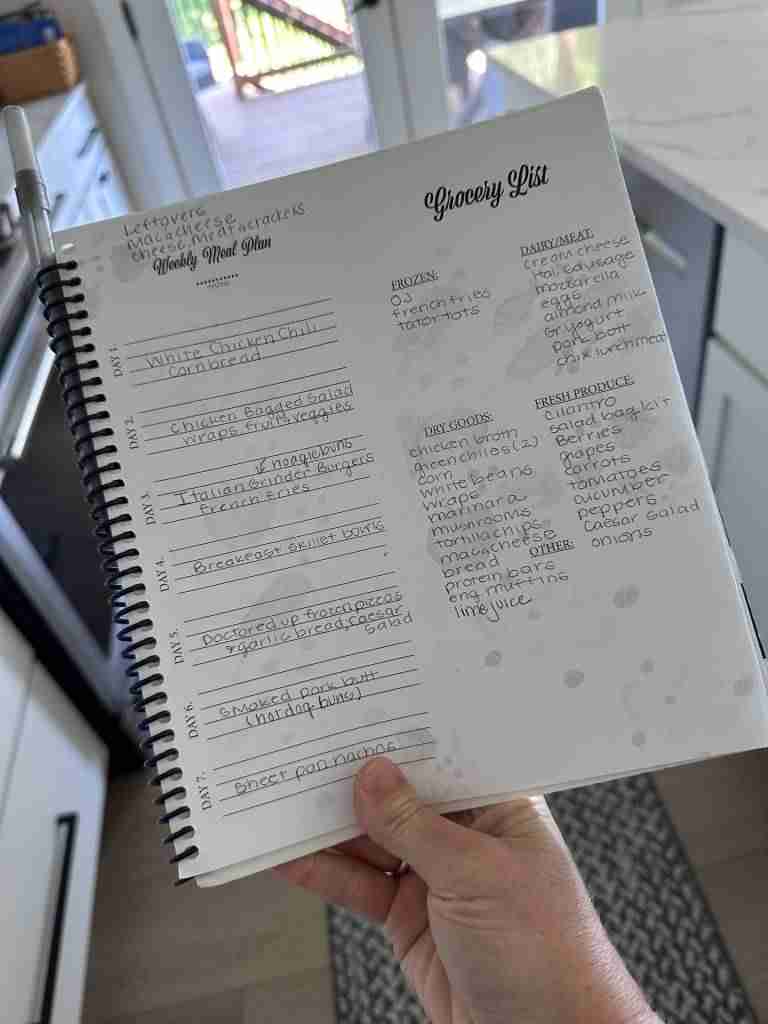 Leftovers
Mac & cheese
Cheese, Meat & crackers
Weekly Meal Plan
DAY 1:
White Chicken Chili
Cornbread
DAY 2:
Chicken Bagged Salad
wraps fruit veggies
DAY 3:
hoagie buns
Italian Grinder Burgers
french fries
DAY 4:
Breakfast skillet bowls
DAY 5:
Doctored up frozen pizzas
+ garlic bread, caesar
salad
DAY 6:
Smoked pork butt
(hot dog buns)
DAY 7:
Sheet pan nachos
Grocery List
FROZEN:
OJ
french fries
tator tots
DAIRY/MEAT:
cream cheese
Ital. sausage
mozzarella
eggs
almond milk
Gr yogurt
pork butt
chik lunchmeat
DRY GOODS:
chicken broth
green chiles (2)
corn
white beans
wraps
marinara
mushrooms
tortilla chips
mac & cheese
bread
protein bars
eng muffins
lime juice
FRESH PRODUCE:
cilantro
salad bag kit
Berries
grapes
carrots
tomatoes
cucumber
peppers
caesar salad
onions
OTHER: